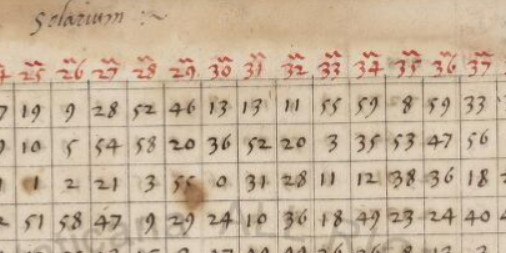 Solarium
25 26 27 28 29 30 31 32 33 34 35 36 37
19 9 28 52 46 13 13 11 55 59 8 59 33
10 5 54 58 20 36 52 20 3 35 53 47 56
1 2 21 3 55 0 31 28 11 12 38 36 18
51 58 47 9 29 24 10 36 18 49 23 24 40